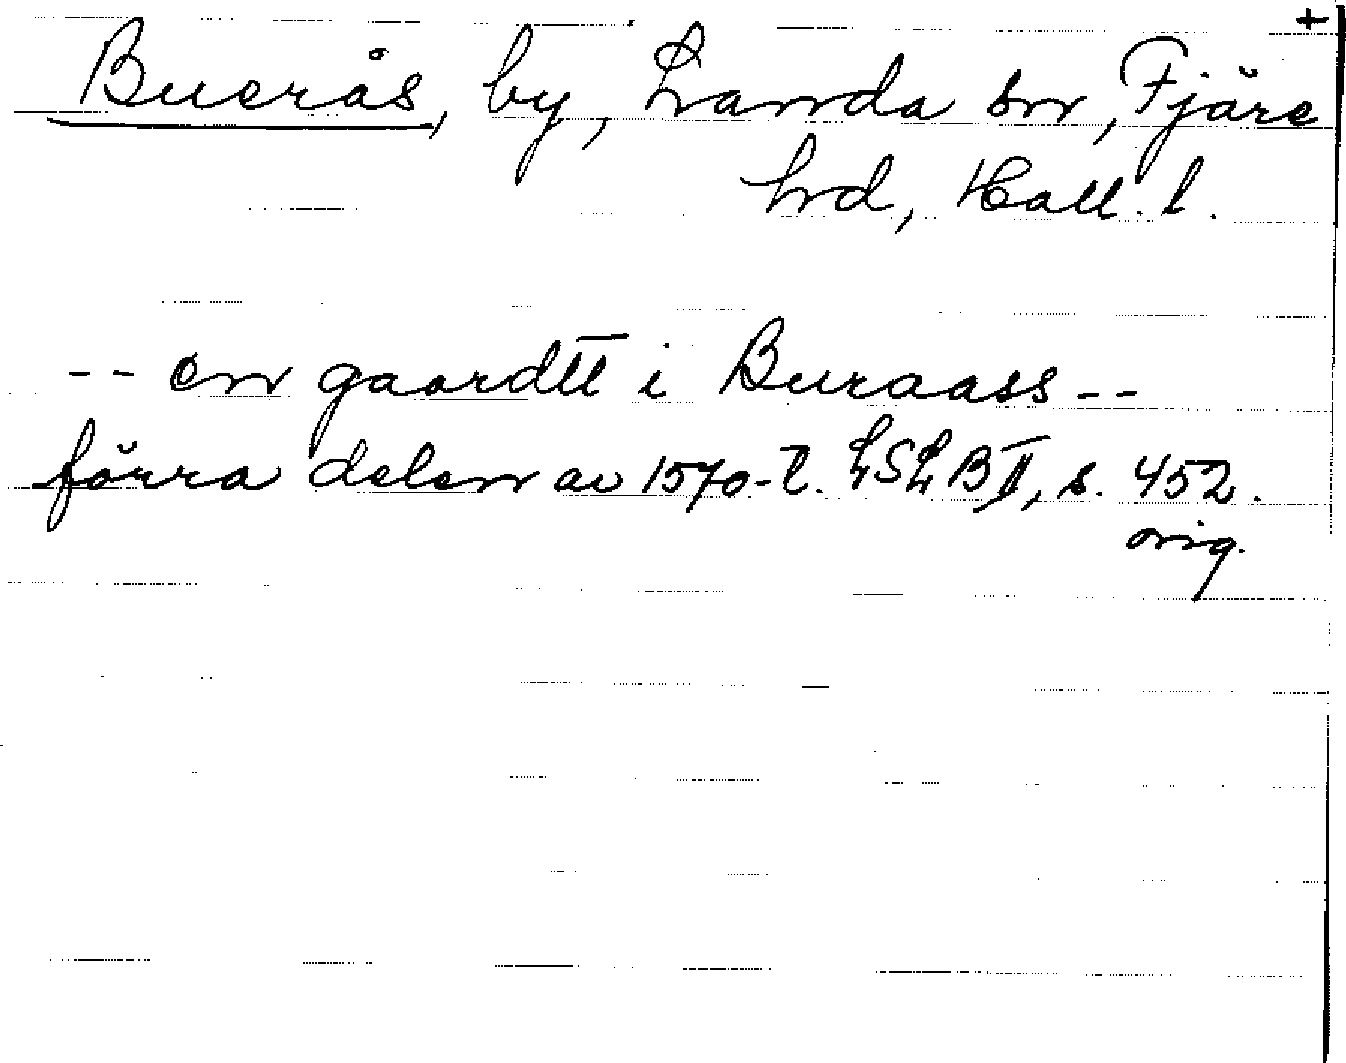 +
Buerås, by, Landa sn, Fjäre
hd, Hall. l.
-- en gaardtt i Buraass --
förra delen av 1570-t. LSLB II, s. 452.
orig.